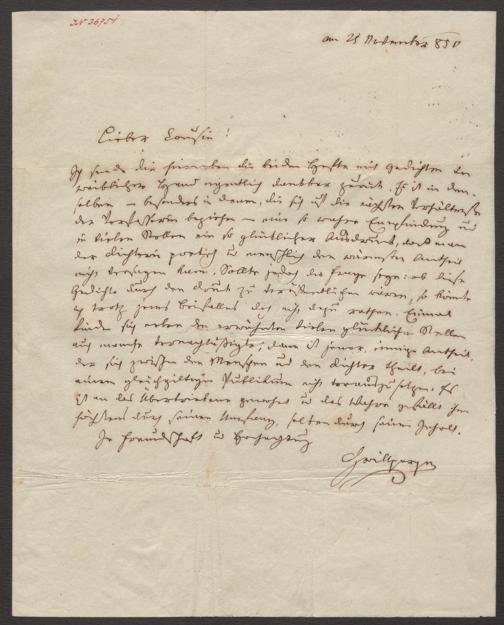 IN 26954
am 25 November 850
Lieber Cousin!
Ich sende dir hierneben die beiden Hefte mit Gedichten von
weiblicher Hand eigentlich dankbar zurück. Es ist in den-
selben – besonders in denen, die sich auf die nächsten Verhältnisse
der Verfasserin beziehen – eine so wahre Empfindung und
in vielen Stellen ein so glücklicher Ausdruck, daß man
der Dichterin poetisch u menschlich den wärmsten Antheil
nicht versagen kann. Sollte jedoch die Frage seyn: ob diese
Gedichte durch den Druck zu veröffentlichen wären, so könnte
ich trotz jenes Beifalles doch nicht dazu rathen. Einmal
finden sich neben den erwähnten vielen glücklichen Stellen
auch manche vernachläßigte; dann ist jener, innige Antheil,
der sich zwischen den Menschen und den Dichter theilt, bei
einem gleichgiltigen Publikum nicht vorauszusetzen. Es
ist an das Übertriebene gewohnt u das Wahre gefällt ihm
höchstens durch seinen Umfang, selten durch seinen Inhalt.
In Freundschaft u Hochachtung
Grillparzer